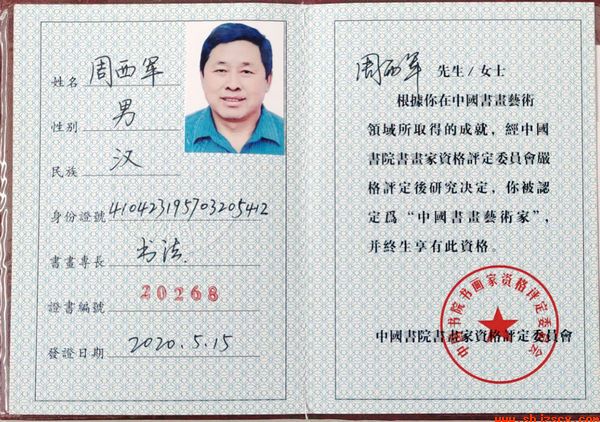 姓名 周西军
性别 男
民族 汉
身份證號 410423195703205412
書畫專長 书法
證書編號 20268
發證日期 2020.5.15
周西军 先生/女士
根據你在中國書畫藝術
領域所取得的成就，經中國
書院書畫家資格評定委員會嚴
格評定後研究决定，你被認
定爲“中國書畫藝術家”，
并終生享有此資格。
中國書院書畫家資格評定委員會
中国书院书画家资格评定委员会
www.shjzscx.com